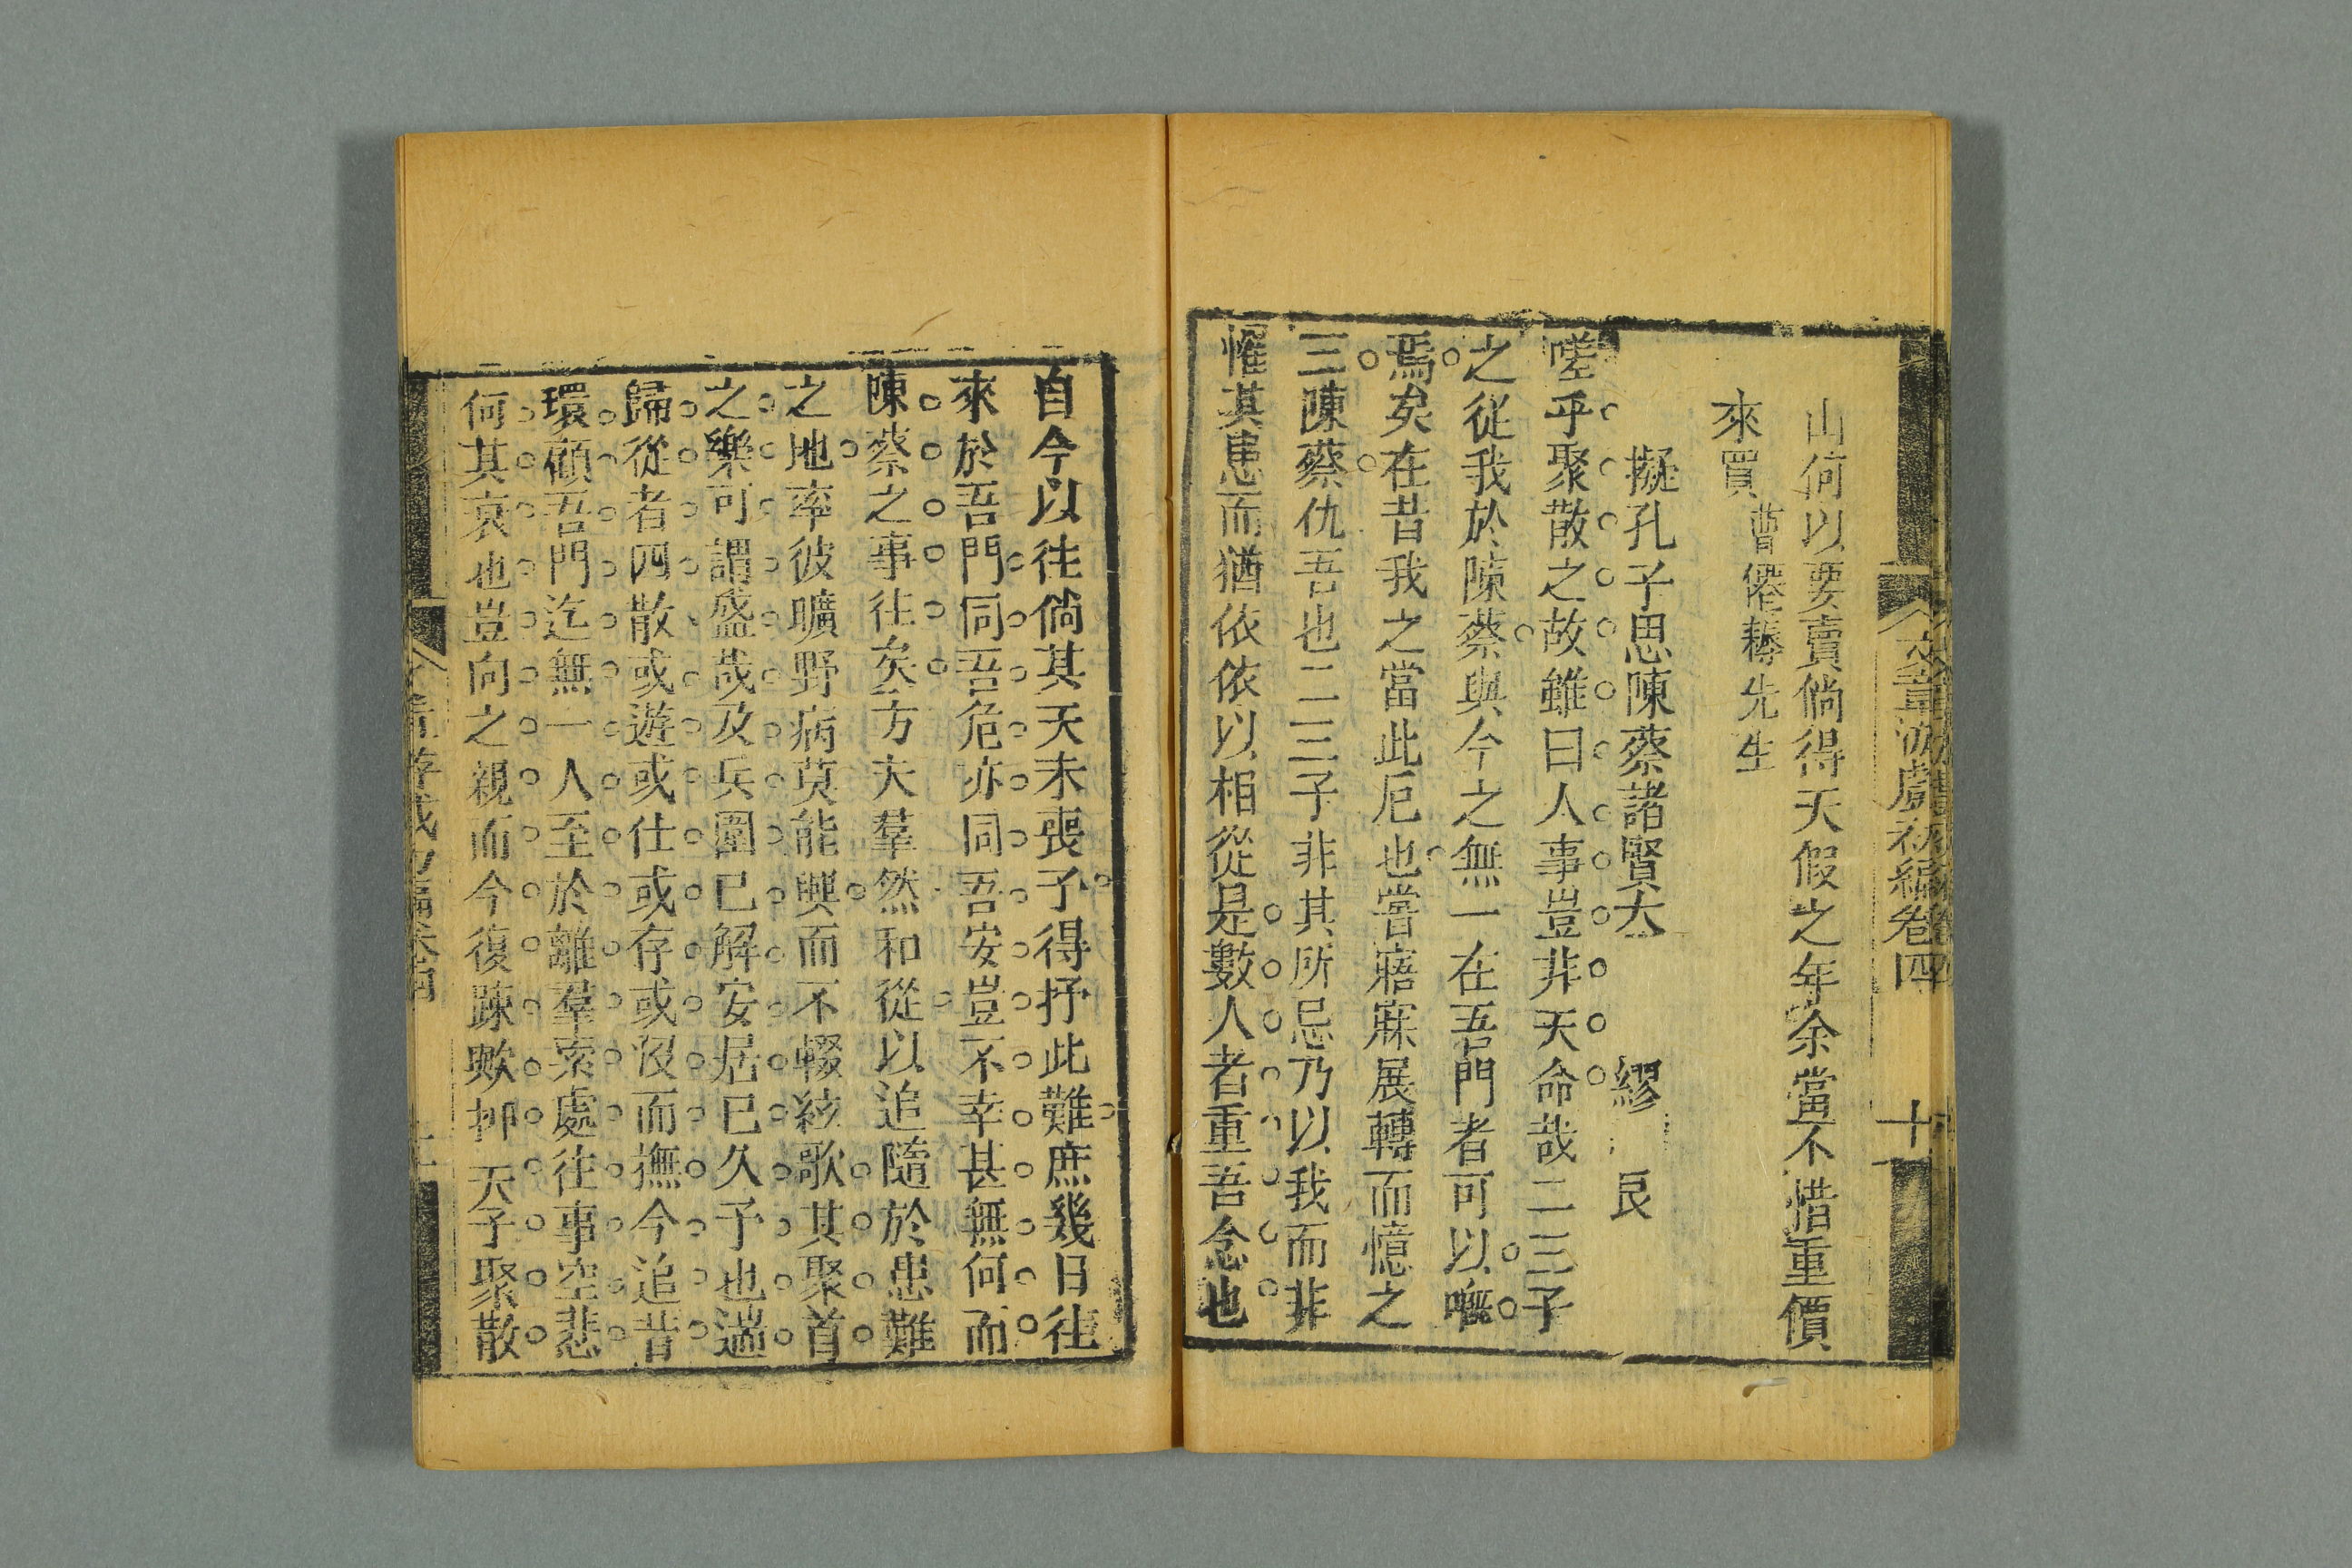 文章游戲初編卷四 十
山何以要賣倘得天假之年余當不惜重價
來買 曹僊耨先生
擬孔子思陳蔡諸賢文 繆艮
嗟乎聚散之故雖曰人事豈非天命哉二三子
之從我於陳蔡與今之無一在吾門者可以嘅
焉矣在昔我之當此厄也嘗寤寐展轉而憶之
三陳蔡仇吾也二三子非其所忌乃以我而非
罹其患而猶依依以相從是數人者重吾念也
自今以往倘其天未喪予得抒此難庶幾日往
來於吾門同吾危亦同吾安豈不幸甚無何而
陳蔡之事往矣方夫羣然和從以追隨於患難
之地率彼曠野病莫能興而不輟絃歌其聚首
之樂可謂盛哉及兵圍已解安居已久予也遄
歸從者四散或遊或仕或存或沒而撫今追昔
環顧吾門迄無一人至於離羣索處往事空悲
何其哀也豈向之親而今復踈歟抑天子聚散